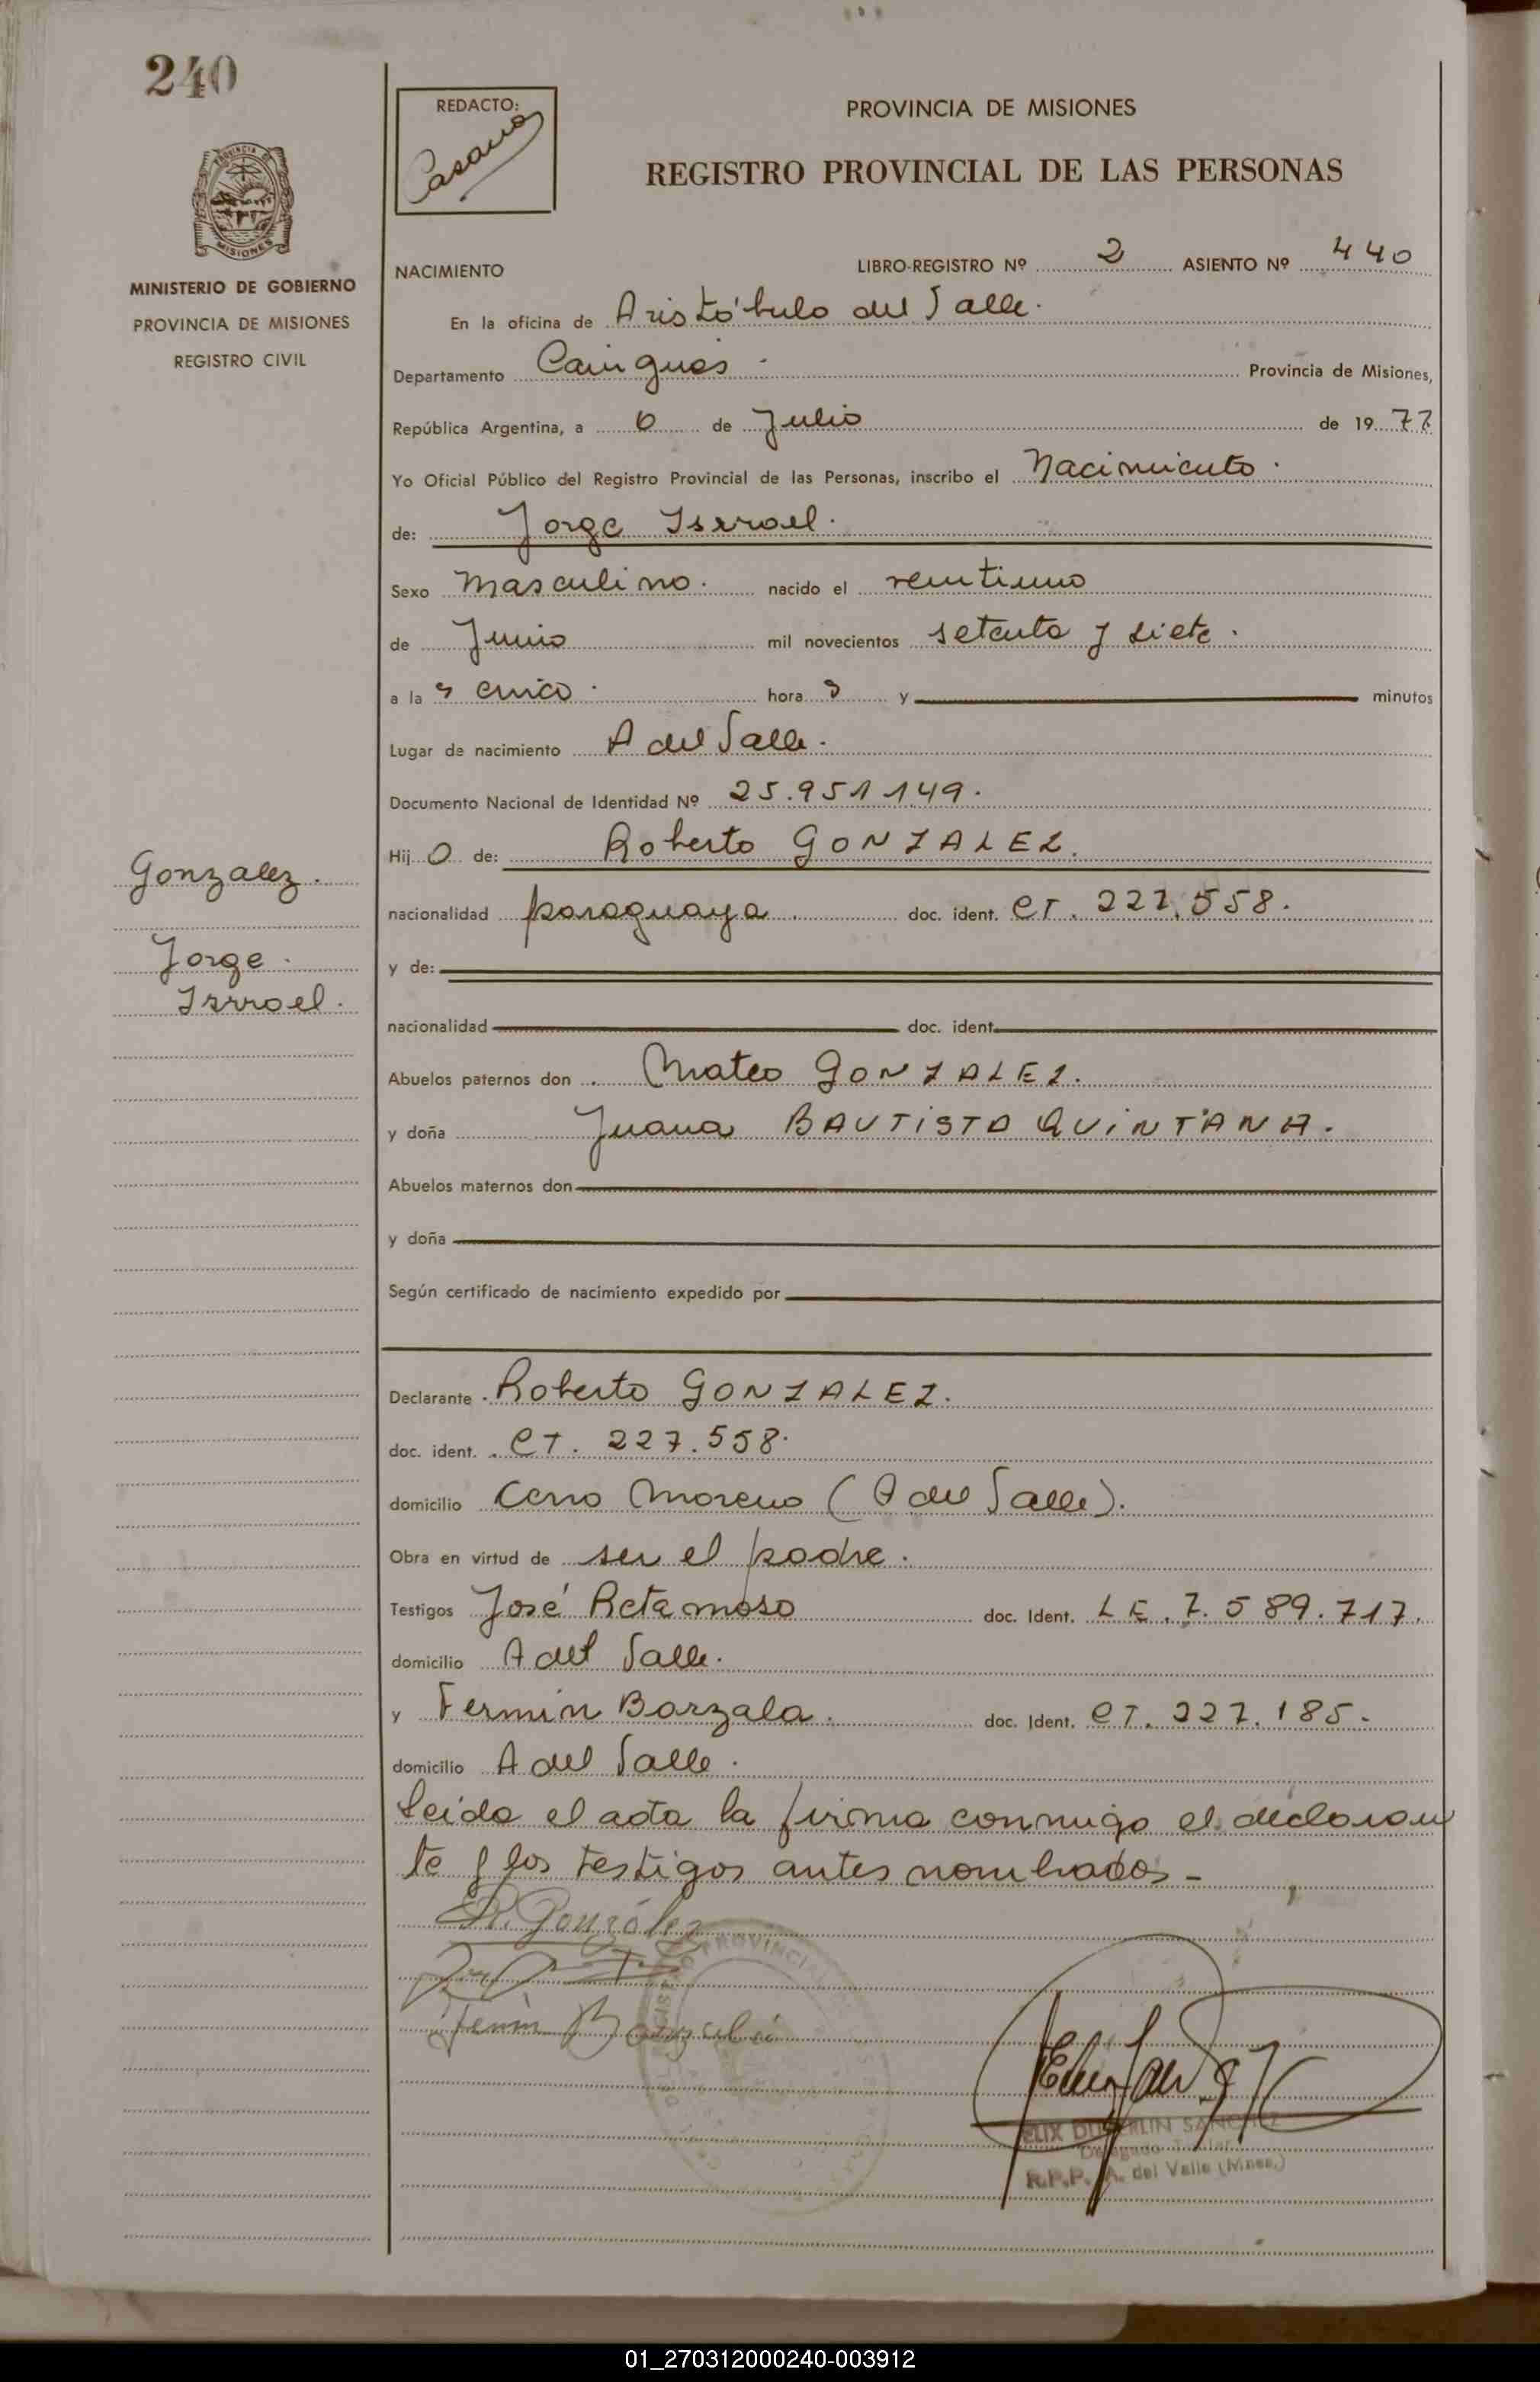 240
REDACTO:
Casano
PROVINCIA DE MISIONES
REGISTRO PROVINCIAL DE LAS PERSONAS
PROVINCIA DE
MISIONES
MINISTERIO DE GOBIERNO
PROVINCIA DE MISIONES
REGISTRO CIVIL
NACIMIENTO LIBRO-REGISTRO Nº 2 ASIENTO Nº 440
En la oficina de Aristóbulo del Valle.
Departamento Cainguas. Provincia de Misiones,
República Argentina, a 6 de Julio de 1977
Yo Oficial Público del Registro Provincial de las Personas, inscribo el Nacimiento.
de: Jorge Isrrael.
Sexo Masculino. nacido el veintiuno
de Junio mil novecientos setenta y siete.
a la s cinco. hora s y minutos
Lugar de nacimiento A del Valle.
Documento Nacional de Identidad Nº 25.951.149.
Hij o de: Roberto GONZALEZ.
nacionalidad paraguaya. doc. ident. CI. 227.558.
y de:
nacionalidad doc. ident.
Abuelos paternos don Mateo GONZALEZ.
y doña Juana BAUTISTA QUINTANA.
Abuelos maternos don
y doña
Según certificado de nacimiento expedido por
Declarante Roberto GONZALEZ.
doc. ident. CI. 227.558.
domicilio Cerro Moreno (A del Valle).
Obra en virtud de ser el padre.
Testigos José Retamoso doc. Ident. LE. 7.589.717.
domicilio A del Valle.
y Fermin Barzala. doc. Ident. CI. 227.185.
domicilio A del Valle.
Leida el acta la firma conmigo el declaran
te y los testigos antes nombrados-
R. González
Gonzalez.
Jorge.
Isrroel.
PROVINCIAL
SANCHEZ
Delegado Titular
R.P.P. A. del Valle (Mnes.)
01_270312000240-003912